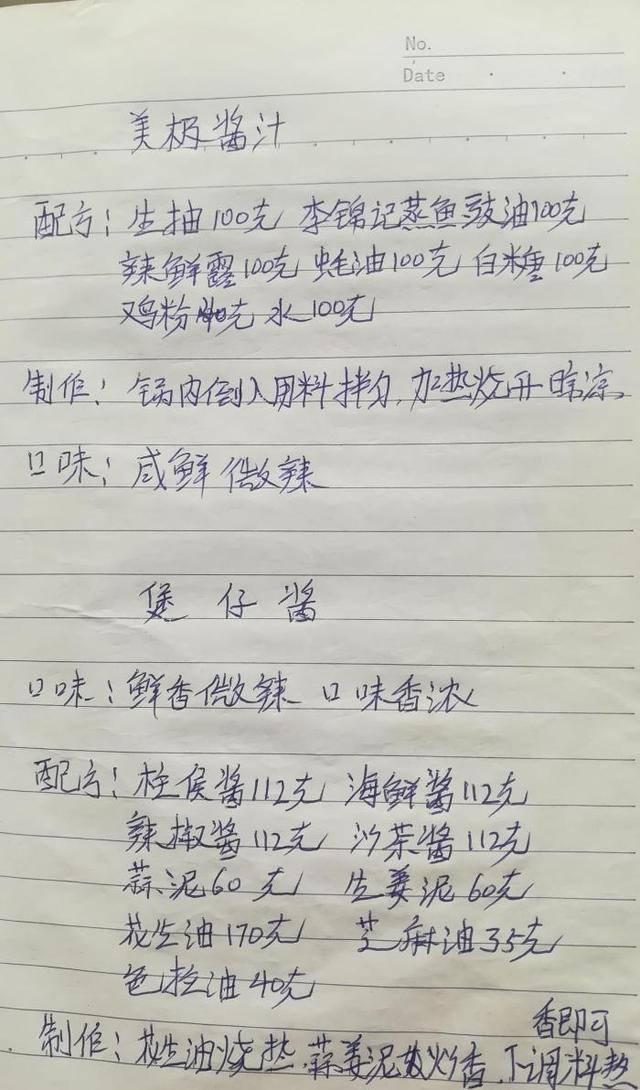 No.
Date
美极酱汁
配方：生抽100克 李锦记蒸鱼豉油100克
辣鲜露100克 蚝油100克 白糖100克
鸡粉40克 水100克
制作：锅内倒入用料拌匀，加热烧开晾凉。
口味：咸鲜微辣
煲仔酱
口味：鲜香微辣 口味香浓
配方：柱侯酱112克 海鲜酱112克
辣椒酱112克 沙茶酱112克
蒜泥60克 生姜泥60克
花生油170克 芝麻油35克
色拉油40克
香即可
制作：花生油烧热，蒜姜泥炒香，下调料熬